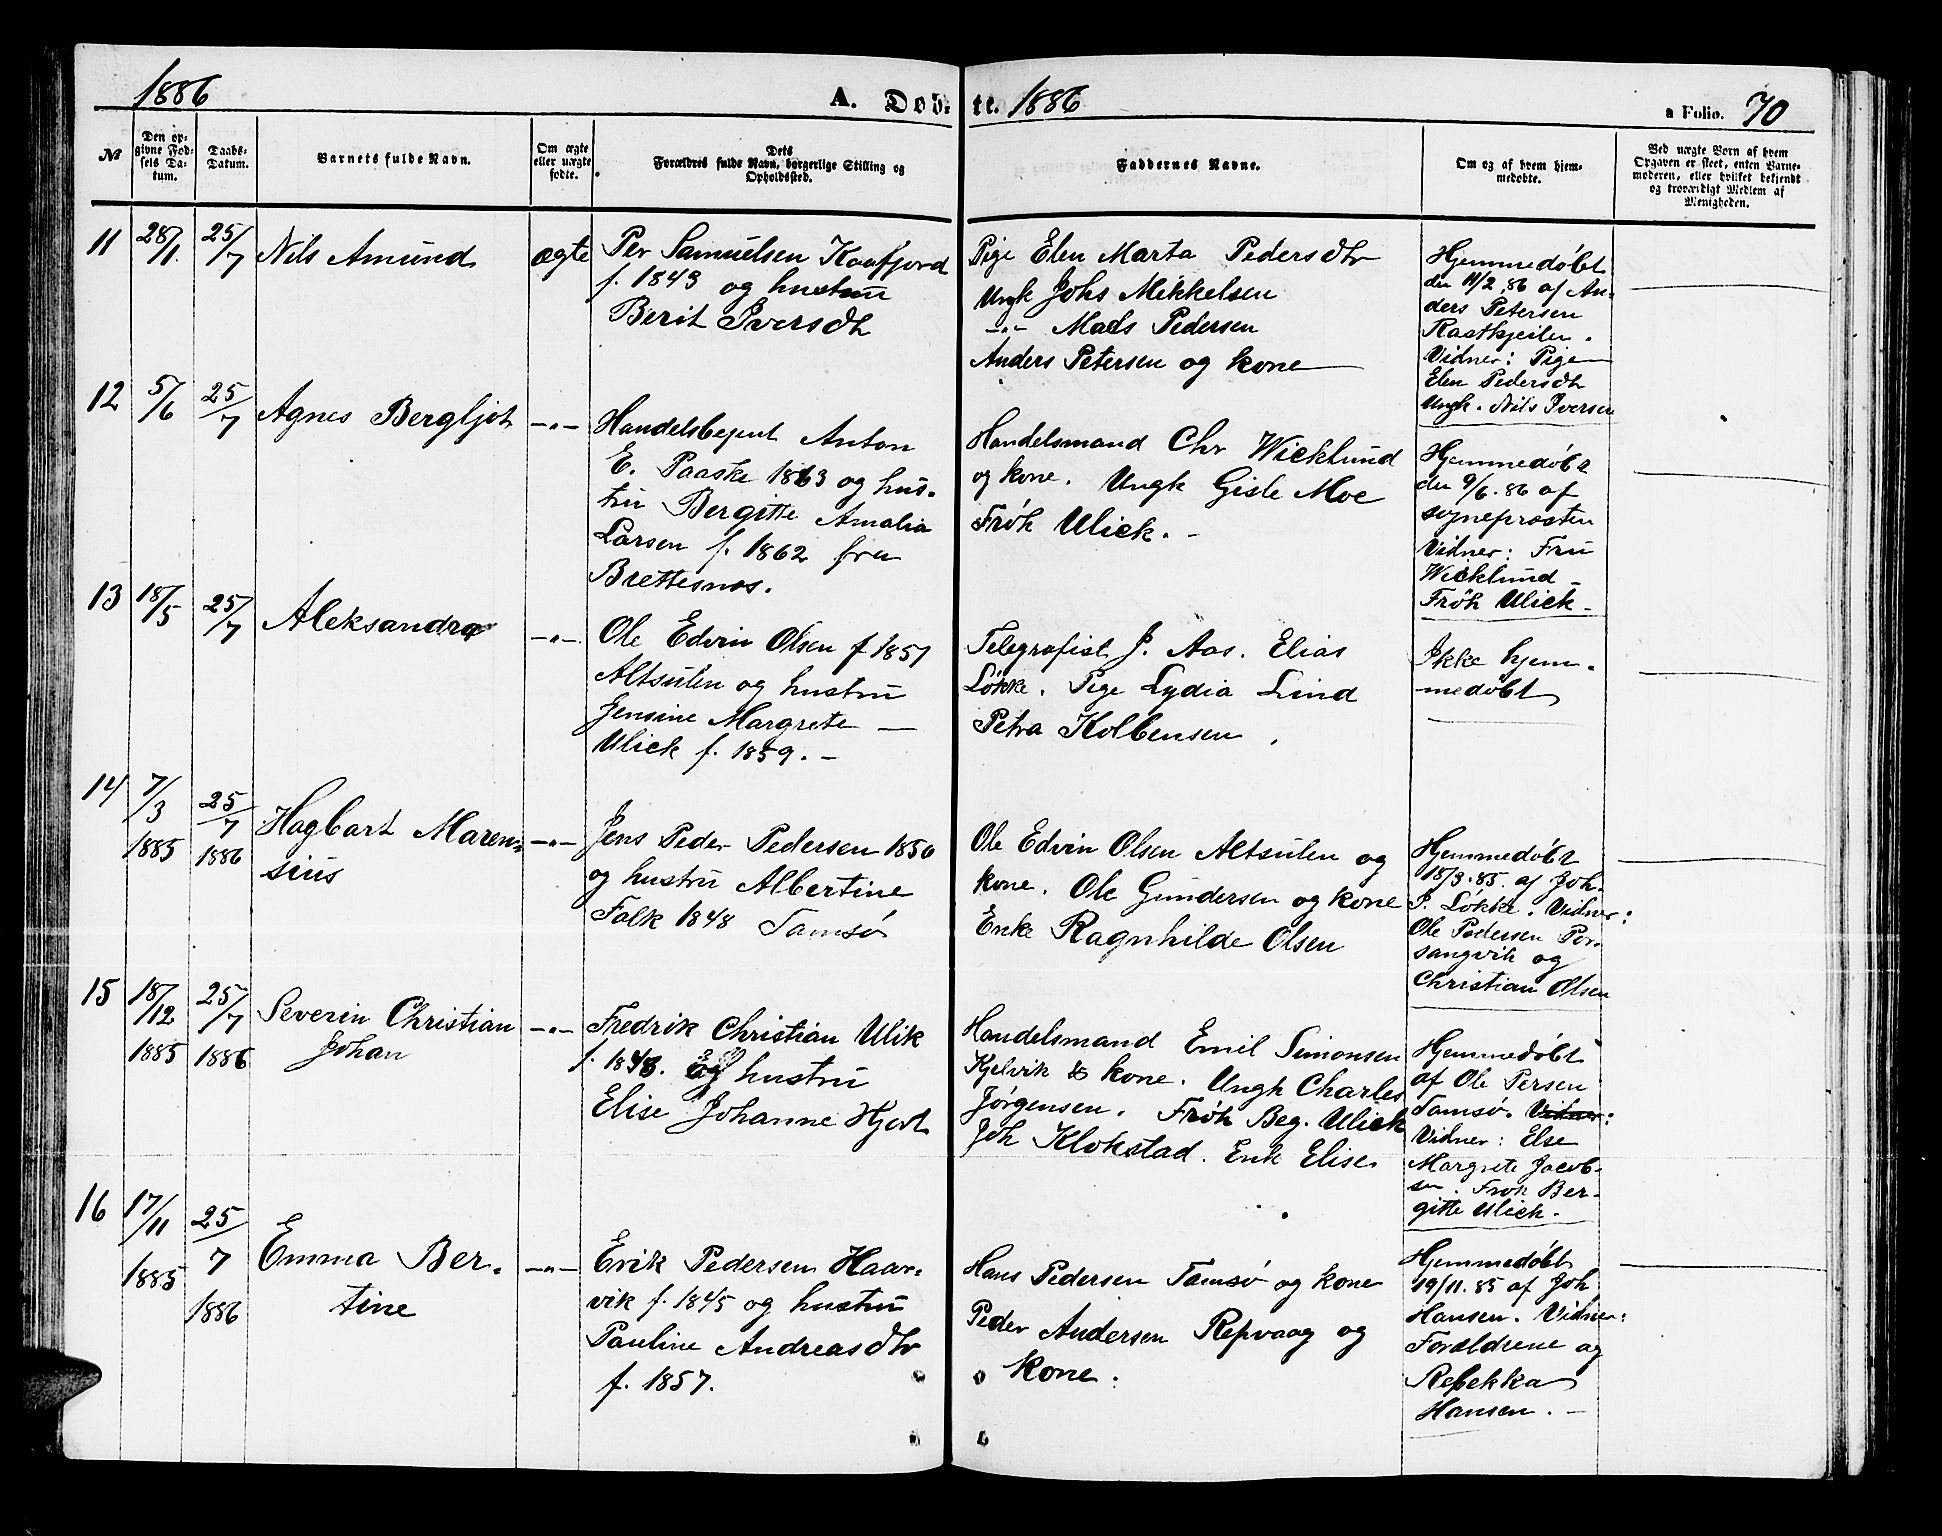 1886
A. Døb-
te. 1886
a Folio. 70
№
Den op-
givne Fød-
sels Da-
tum.
Daabs-
Datum.
Barnets fulde Navn.
Om ægte
eller uægte
fødte.
Dets
Forældres fulde Navn, borgerlige Stilling og
Opholdssted.
Faddernes Navne.
Om og af hvem hjem-
medøbte.
Ved uægte Børn af hvem
Opgaven er skeet, enten Barne-
moderen, eller hvilket bekjendt
og troværdigt Medlem af
Menigheden.
11
28/1.
25/7
Nils Amund
ægte
Per Samuelsen Kaafjord
f. 1843 og hustru
Berit Iversdt
Pige Elen Marta Pedersdtr
Ungk Johs Mikkelsen
-"- Mads Pedersen
Anders Petersen og kone
Hjemmedøbt
den 11/2 86 af An-
ders Petersen
Vidner: Pige
Elen Pedersdt
Ungk. Nils Iversen
12
5/6
25/7
Agnes Bergljot
-"-
Handelsbejent Anton
E. Paaske 1863 og hus-
tru Bergitte Amalia
Larsen f. 1862 fra
Brettesnæs.
Handelsmand Chr Wicklund
og kone. Ungk Gisle Moe
Frøk Ulick. -
Hjemmedøbt
den 9/6. 86 af
sogneprøsten
Vidner: Fru
Wicklund -
Frøk Ulick -
13
18/5
25/7
Aleksandra
-"-
Ole Edvin Olsen f 1857
Altsulen og hustru
Jensine Margrete -
Ulick f. 1859. -
Telegrafist J. Aas. Elias
Løkke. Pige Lydia Lind
Petra Kolbensen.
Ikke hjem-
medøbt
14
7/3
1885
25/7
1886
Hagbart Maren-
sius
-"-
Jens Peder Pedersen 1850
og hustru Albertine
Falk 1848 Tamsø
Ole Edvin Olsen Altsulen og
kone. Ole Gundersen og kone
Enke Ragnhilde Olsen
Hjemmedøbt
18/3. 85. af Joh.
P. Løkke. Vidner:
Ole Pedersen Por-
sangvik og
Christian Olsen
15
18/12
1885
25/7
1886
Severin Christian
Johan
-"-
Fredrik Christian Ulik
f. 1843. og hustru
Elise Johanne Hjort
Handelsmand Emil Simonsen
Kjelvik & kone. Ungk Charles
Jørgensen. Frøk Beg. Ulick
Joh Klokstad. Enk Elise
Hjemmedøbt
af Ole Persen
Tamsø. Vidner:
Vidner: Else
Margrete Jacob-
sen. Frøk Ber-
gitte Ulick.
16
17/11
1885
25/7
1886
Emma Ber-
tine
-"-
Erik Pedersen Haar-
vik f. 1845 og hustru
Pauline Andreasdtr
f. 1857.
Hans Pedersen Tamsø og kone
Peder Andersen Repvaag og
kone.
Hjemmedøbt
19/11. 85 af Joh
Hansen. Vidner:
Forældrene og
Rebekka
Hansen. -